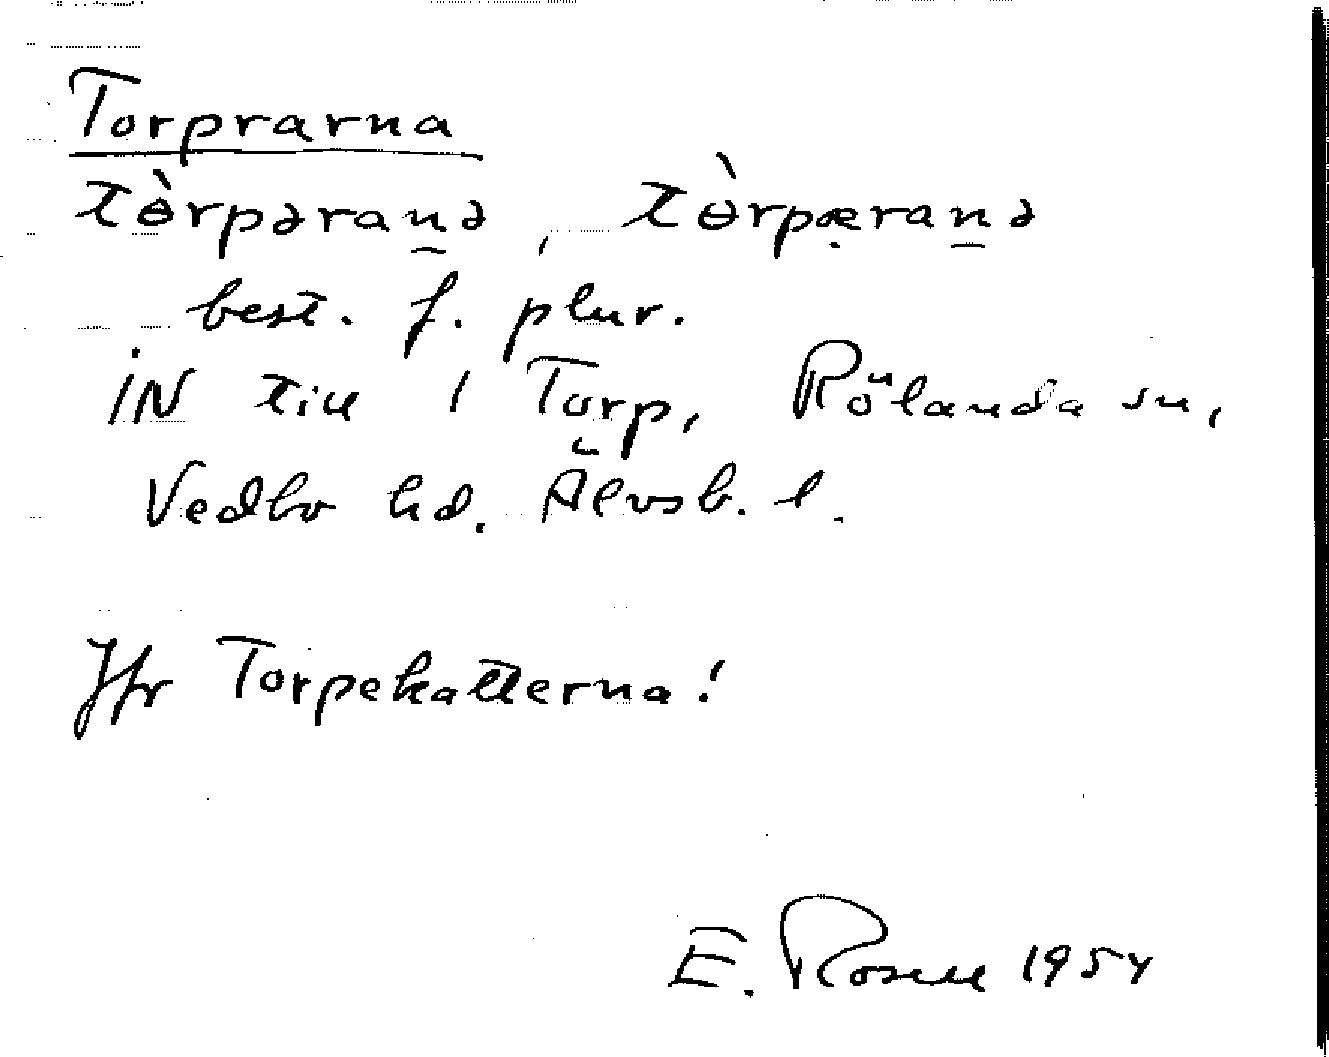 Torprarna
tɵ̀rpəran̲ə, tɵ̀rpæ̣ran̲ə
best. f. plur.
IN till 1 Torp, Rölanda sn,
Vedbo hd. Älvsb. l.
Jfr Torpekatterna!
E. Rosell 1954